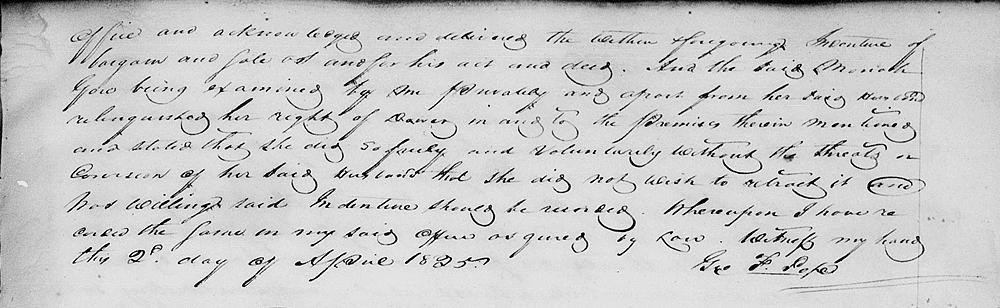 office and acknowledged and delivered the within & foregoing Indenture of
bargain and sale as and for his act and deed. And the said Moriah
being examined by me privately and apart from her said Husband
relinquished her right of Dower in and to the premises therein mentioned
and stated that she did so freely and voluntarily without the threats or
Coercion of her said Husband that she did not wish to retract it and
was willing said Indenture should be recorded. Whereupon I have re
corded the same in my said office as quired by Law. Witness my hand
this 2d day of April 1835.
Geo F. Pope